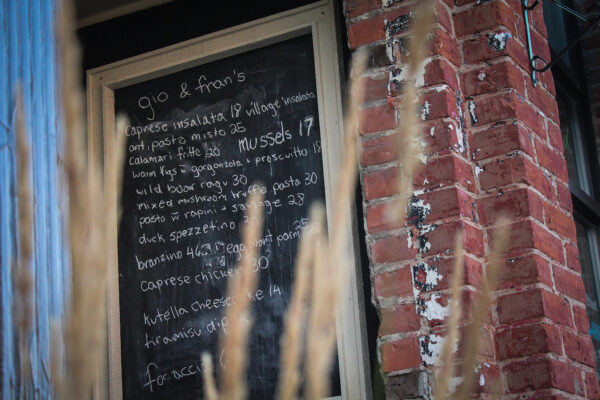 gio & fran's
caprese insalata 18 village insalata
ant. pasto misto 25
calamari fritte 20 mussels 17
warm figs gorgonzola + proscuitto 18
wild boar ragu 30
mixed mushroom truffle pasta 30
pasta w rapini + sausage 28
duck spezzetino
branzino 46 eggplant parm 25
caprese chicken 30
nutella cheesecake 14
tiramisu dip
focaccia